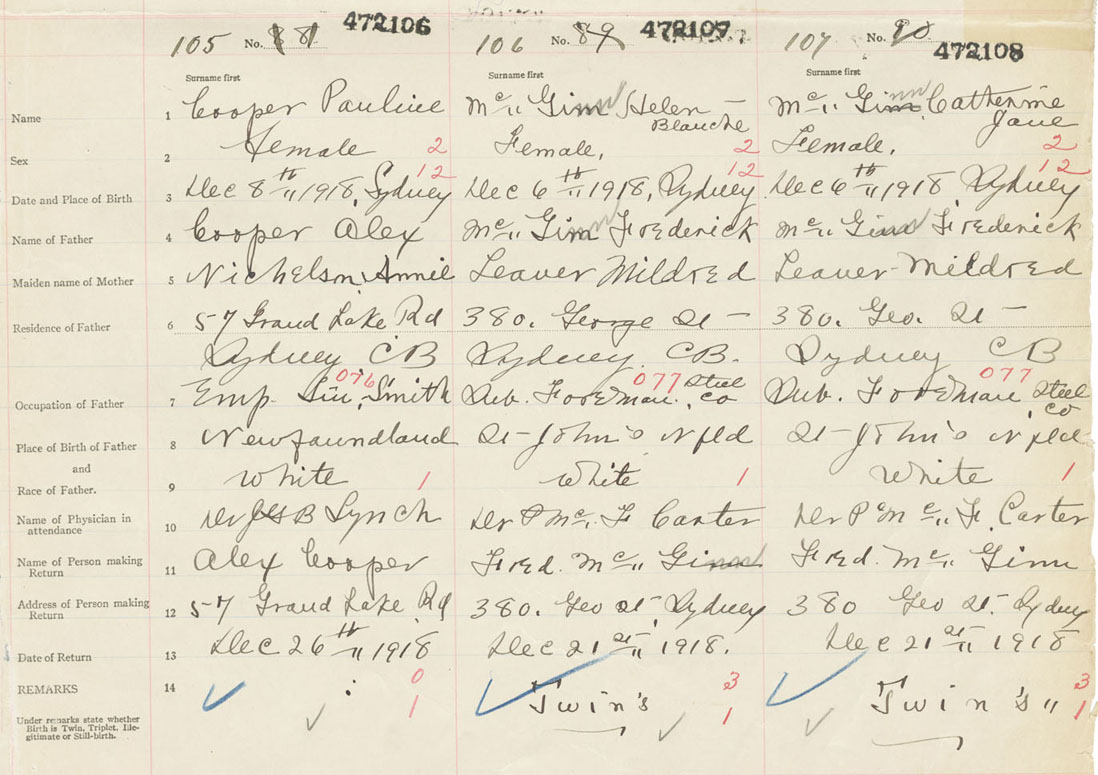 105 No. 88 472106 106 No. 89 472107 107 No. 90 472108
Surname first Surname first Surname first
Name 1 Cooper Pauline Mc" Ginn Helen — Blanche Mc" Ginn Catherine Jane
Sex 2 Female 2 Female. 2 Female. 2
12 12 12
Date and Place of Birth 3 Dec 8th" 1918, Sydney Dec 6th" 1918, Sydney Dec 6th" 1918, Sydney
Name of Father 4 Cooper Alex Mc" Ginn Frederick Mc" Ginn Frederick
Maiden name of Mother 5 Nichelson, Annie Leaver Mildred Leaver Mildred
Residence of Father 6 57 Grand Lake Rd 380. George St — 380. Geo. St —
Sydney CB Sydney CB. Sydney CB
076 077 077
Occupation of Father 7 Emp. Smith Sub. Foreman. Steel Co Sub. Foreman, Steel Co
Place of Birth of Father 8 Newfoundland St John's Nfld St John's Nfld
and
Race of Father. 9 White 1 White 1 White 1
Name of Physician in attendance 10 Dr B Lynch Dr P Mc" F Carter Dr P Mc" F. Carter
Name of Person making Return 11 Alex Cooper Fred. Mc" Ginn Fred. Mc" Ginn
Address of Person making Return 12 57 Grand Lake Rd 380. Geo St, Sydney 380 Geo St. Sydney
Date of Return 13 Dec 26th" 1918 Dec 21st" 1918. Dec 21st" 1918
REMARKS 14 0 Twin's 3 Twin's" 3
1 1 1
Under remarks state whether
Birth is Twin, Triplet, Ille-
gitimate or Still-birth.